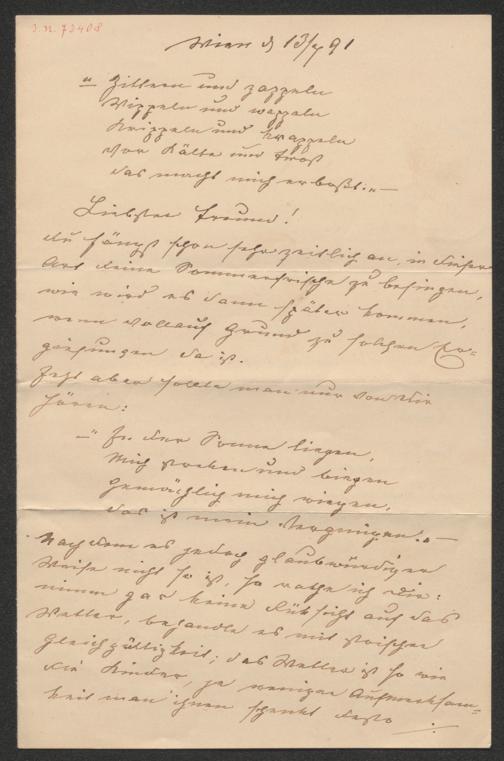 J.N. 73408
Wien d 13/7 91
„ Zittern und zappeln
Wippeln und wappeln
Krippeln und krappeln
Vor Kälte und Frost
das macht mich erbost." —
Liebster Freund!
du fängst schon sehr zeitlich an, in dieser
Art deine Sommerfrische zu besingen,
wie wird es dann später kommen,
wenn vollauf Grund zu solchen Er-
gießungen da ist.
Jetzt aber sollte man nur von dir
hören:
— „ In der Sonne liegen,
Mich strecken und biegen
Gemächlich mich wiegen,
das ist mein Vergnügen." —
Nachdem es jedoch glaubwürdiger
Weise nicht so ist, so rathe ich dir:
nimm gar keine Rücksicht auf das
Wetter, behandle es mit stoischer
Gleichgültigkeit; das Wetter ist so wie
die Kinder, je weniger Aufmerksam-
keit man ihnen schenkt desto